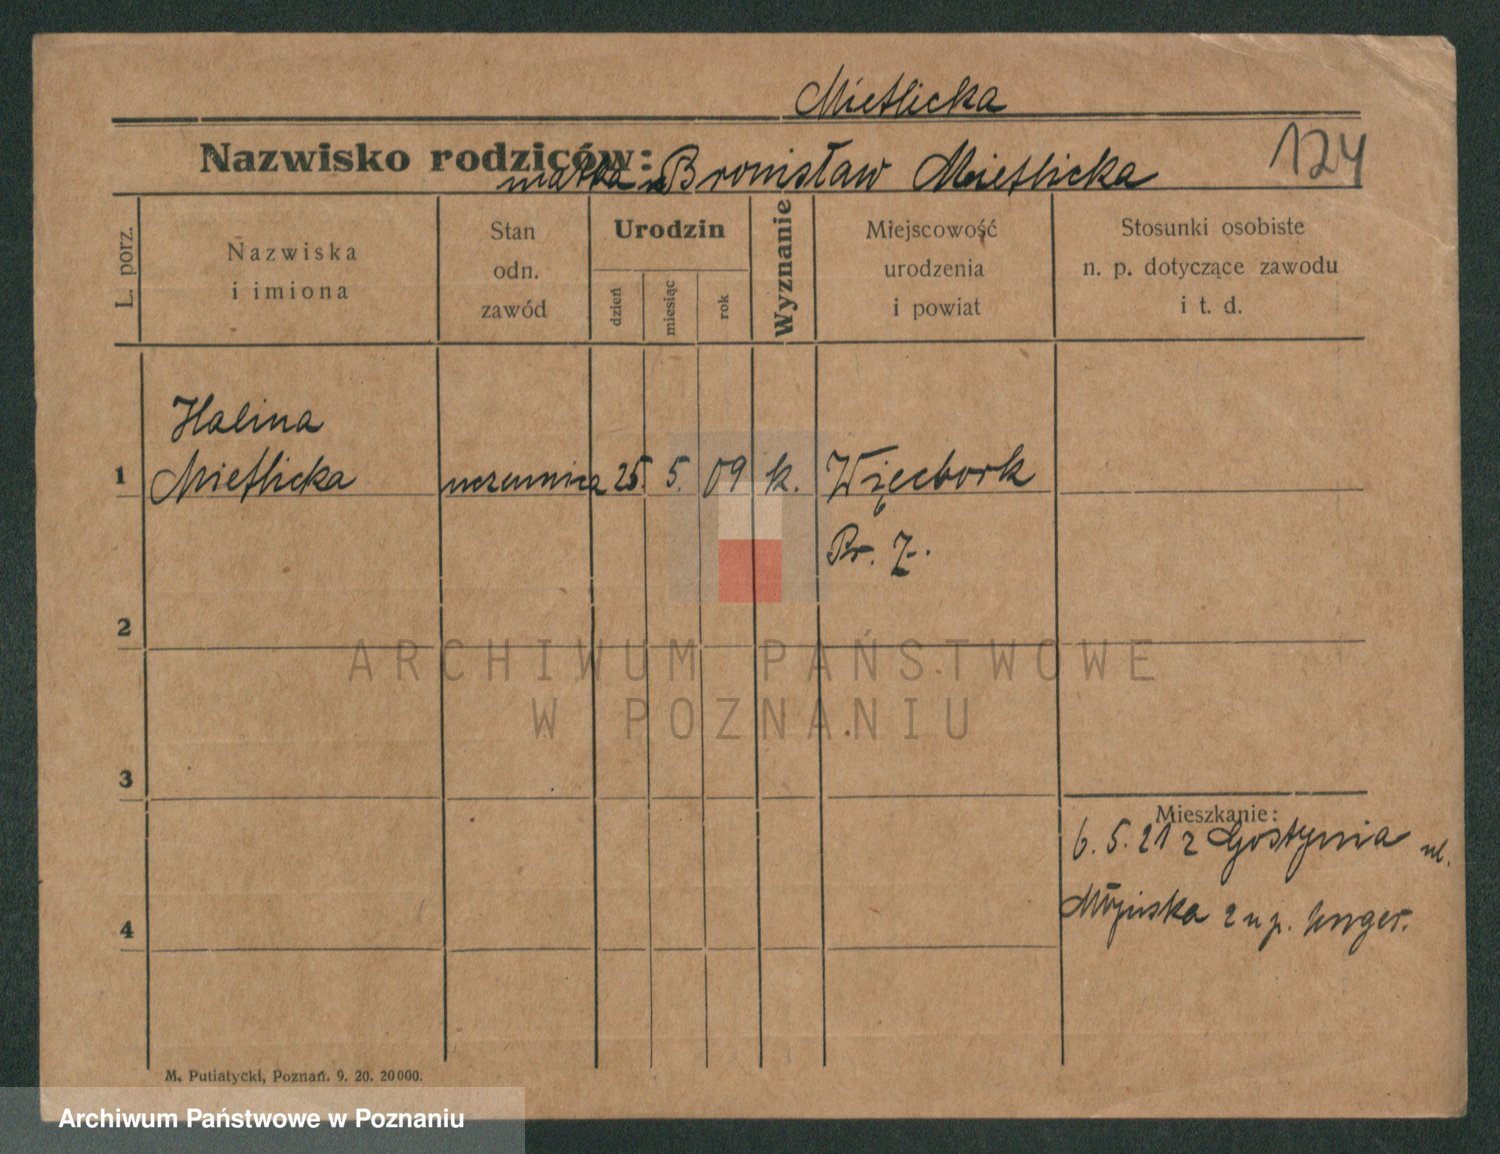 Mietlicka
Nazwisko rodziców: matka Bronisław Mietlicka
124
L. porz.
Nazwiska
i imiona
Stan
odn.
zawód
Urodzin
dzień
miesiąc
rok
Wyznanie
Miejscowość
urodzenia
i powiat
Stosunki osobiste
n. p. dotyczące zawodu
i t. d.
Halina
1 Mietlicka uczennica 25. 5. 09 k. Więcbork
Pr. Z.
2
ARCHIWUM PAŃSTWOWE
W POZNANIU
3
Mieszkanie:
6. 5. 21 z Gostynia ul.
2 u p. Unger.
4
M. Putiatycki, Poznań. 9. 20. 20000.
Archiwum Państwowe w Poznaniu